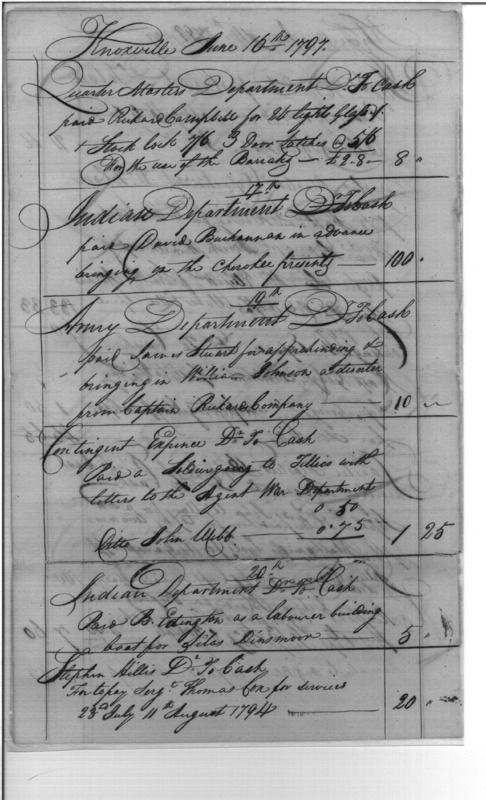 Knoxville June 16th 1797.
Quarter Masters Department Dr. To Cash
paid Richard Campbell for 26 lights Glass
& Stock lock 7/6 3 Door latches @ 5/6
For the use of the Barracks — £2.8 — 8 "
17th
Indian Department Dr. To Cash
paid David Buchannan in advance
bringing on the Cherokee presents — 100 "
19th
Army Department Dr. To Cash
paid James Stuart for apprehending &
bringing in William Johnson a deserter
from Captain Rickard Company — 10 "
Contingent Expence Dr. To Cash
Paid a Soldier going to Tellico with
letters to the Agent War Department
0.50
Ditto John Webb — 0.75 1 25
20th
Indian Department Dr. To Cash
Paid B. Edington as a labourer building
boat for Silas Dinsmoor — 5 "
Stephen Hillis Dr. To Cash
Sergt. Thomas Cox for services
23d July 11th August 1794 — 20 "